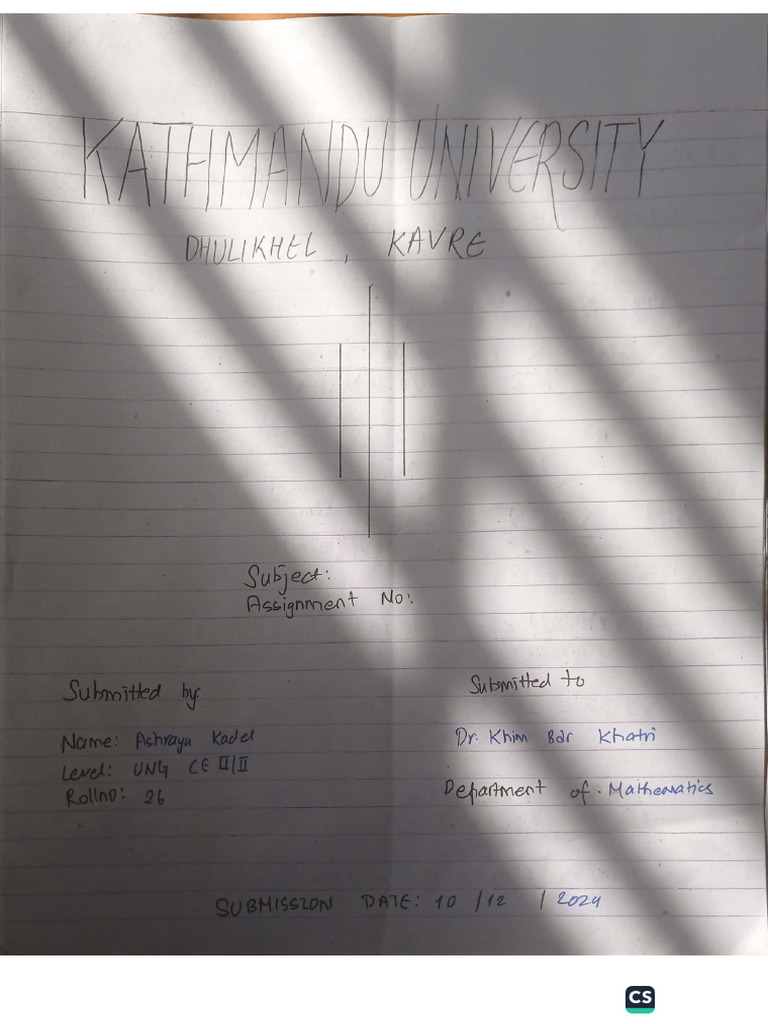 KATHMANDU UNIVERSITY
DHULIKHEL, KAVRE
Subject:
Assignment No:
Submitted by:
Submitted to
Name: Ashraya Kadel
Dr. Khim Bdr Khatri
Level: UNG CE II/II
Rollno: 26
Department of. Mathematics
SUBMISSION DATE: 10 /12 / 2024
CS